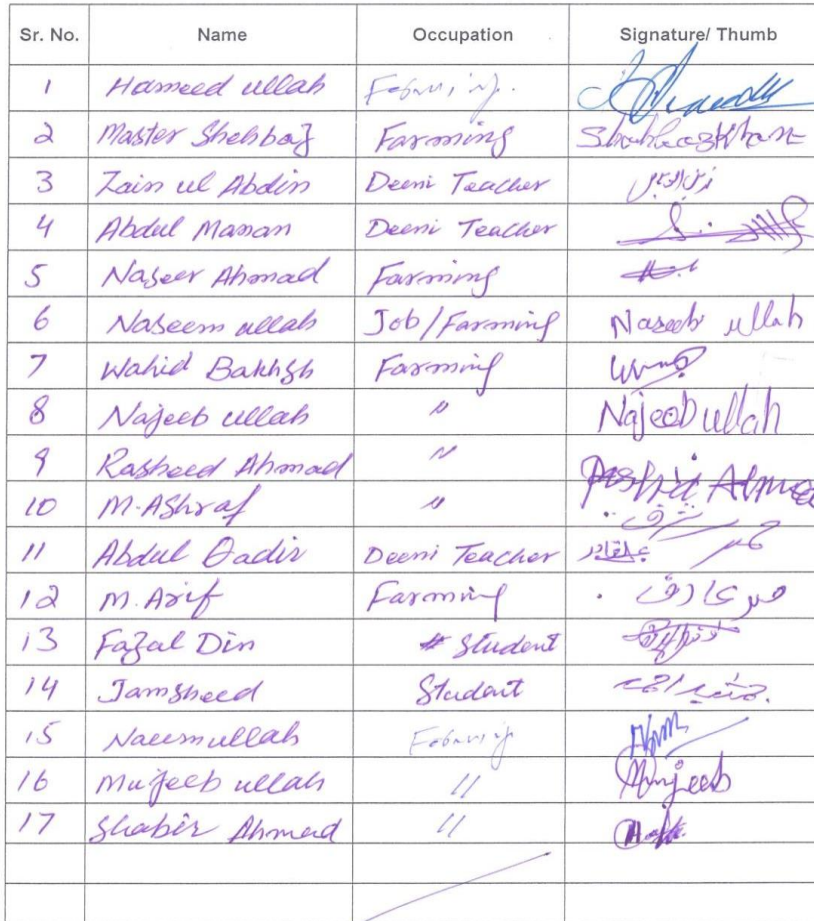 Sr. No. Name Occupation Signature/ Thumb
1 Hameed ullah
2 Master Shehbaz Farming Shahbaz Khan
3 Zain ul Abdin Deeni Teacher
4 Abdul Manan Deeni Teacher
5 Naseer Ahmad Farming
6 Naseem ullah Job/Farming Naseeb ullah
7 Wahid Bakhsh Farming
8 Najeeb ullah 〃 Najeeb ullah
9 Rasheed Ahmad 〃 Rashid Ahmad
10 M. Ashraf 〃
11 Abdul Qadir Deeni Teacher عبدالقادر
12 M. Arif Farming محمد عارف
13 Fazal Din Student
14 Jamsheed Student جمشید احمد
15 Naeemullah
16 Mujeeb ullah 〃 Mujeeb
17 Shabir Ahmad 〃